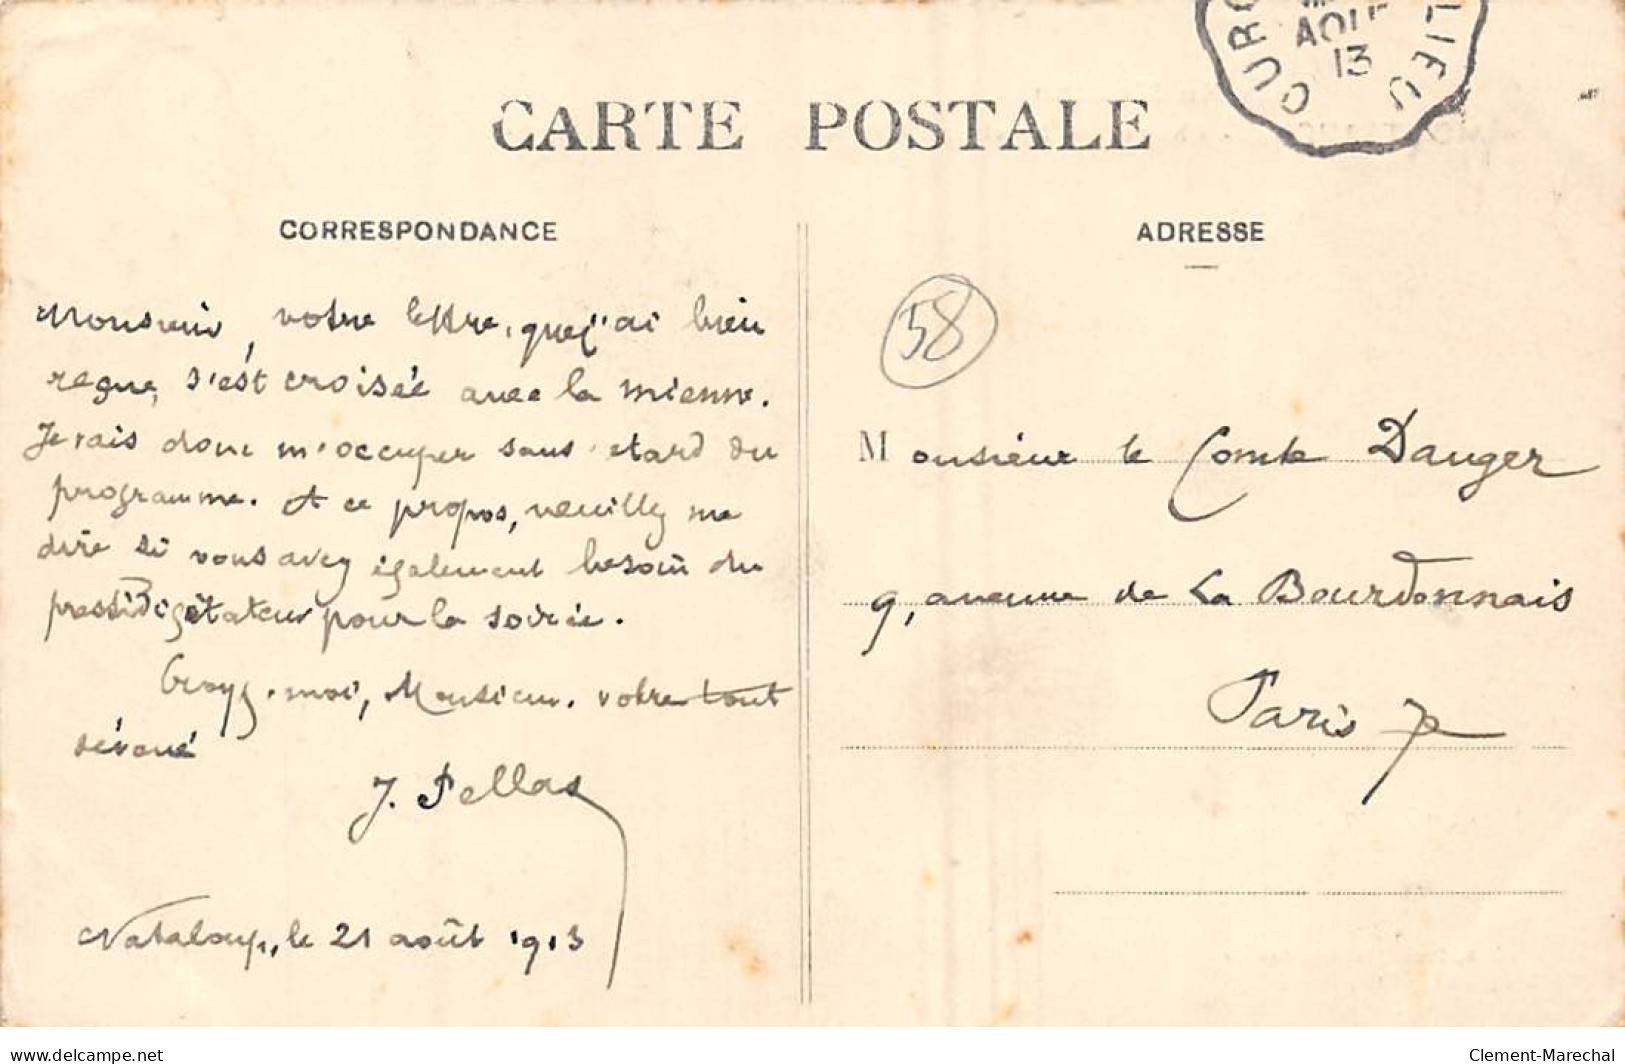 CARTE POSTALE
CORRESPONDANCE
Monsieur, votre lettre, que j'ai bien
reçue, s'est croisée avec la mienne.
Je vais donc m'occuper sans retard du
programme. A ce propos, veuillez me
dire si vous avez également besoin du
prestidigitateur pour la soirée.
Croyez-moi, Monsieur, votre tout
dévoué
J. Pellas
le 21 août 1913
AOUT
13
ADRESSE
58
Monsieur le Comte Dauger
9, avenue de La Bourdonnais
Paris 7e
delcampe.net
Clement-Marechal